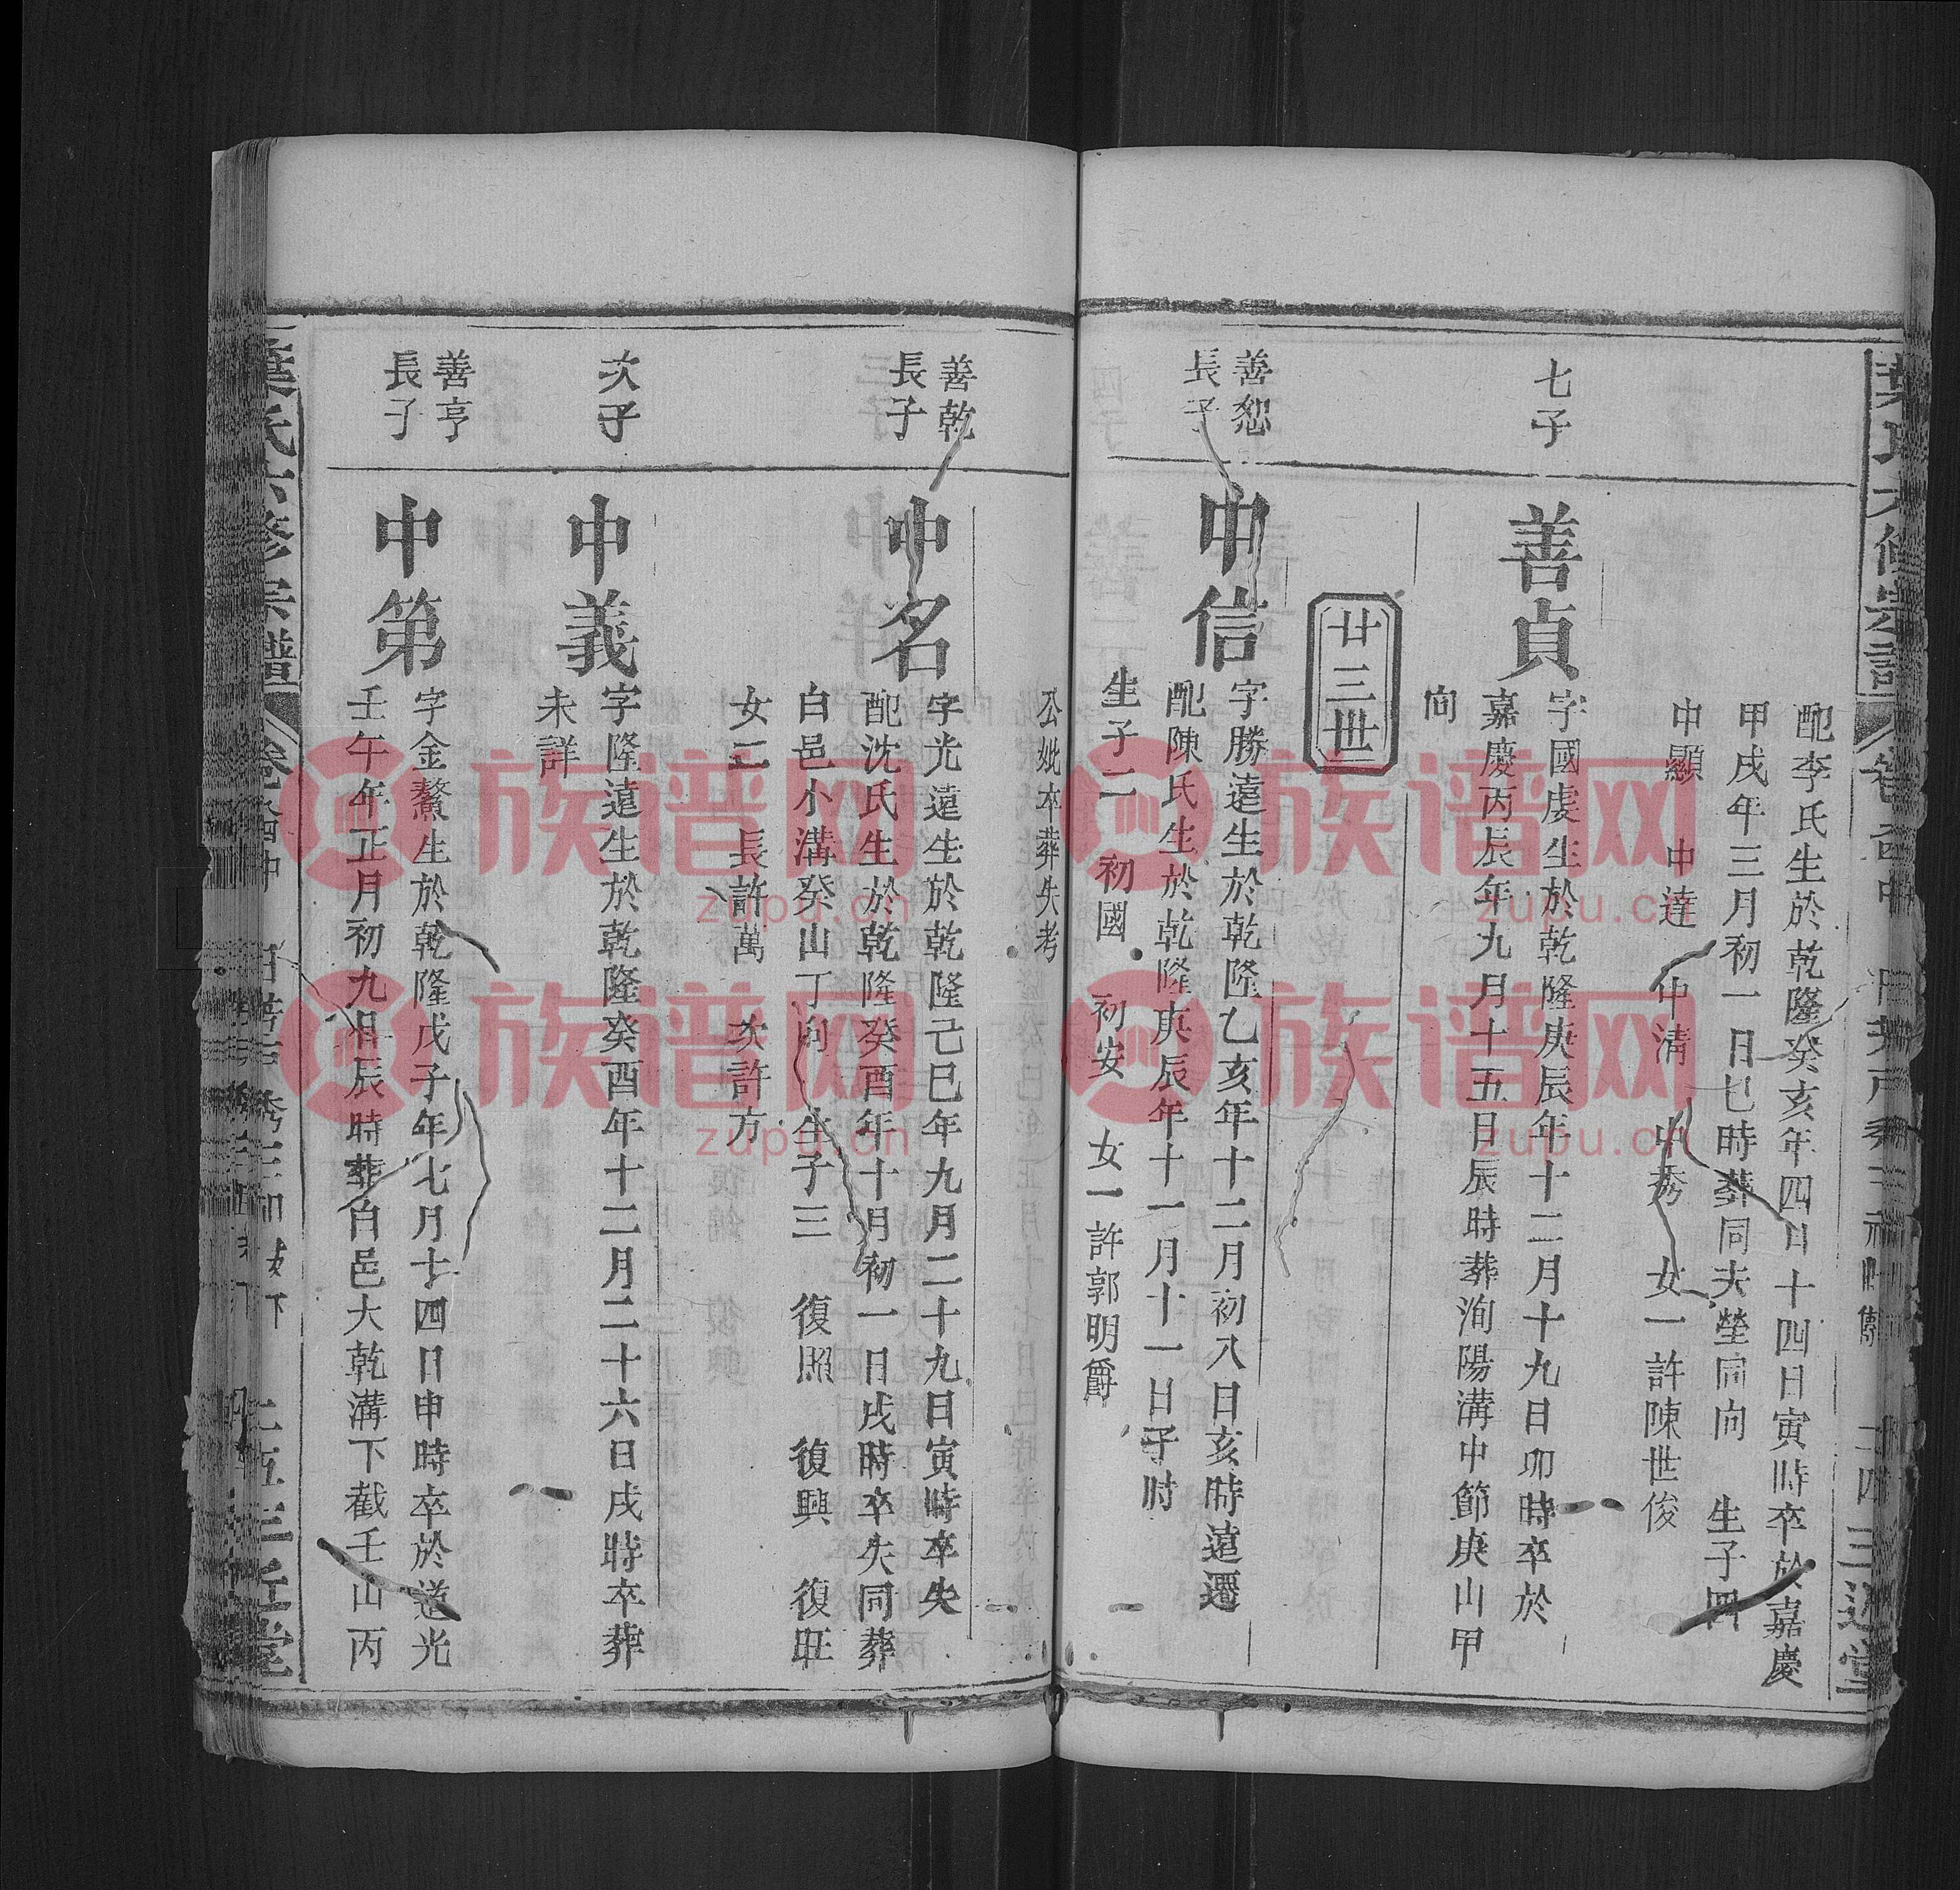 配李氏生於乾隆癸亥年四月十四日寅時卒於嘉慶
甲戌年三月初一日巳時葬同夫塋同向　生子四
中顯　中達　中清　中秀　女一許陳世俊
七子
善貞
字國虔生於乾隆庚辰年十二月十九日卯時卒於
嘉慶丙辰年九月十五日辰時葬洵陽溝中節庚山甲
向
廿三世
善恕
長子
中信
字勝遠生於乾隆乙亥年十二月初八日亥時遠遷
配陳氏生於乾隆庚辰年十一月十一日子时
生子二　初國　初安　女一許郭明爵
公妣卒葬失考
善乾
長子
中名
字光遠生於乾隆己巳年九月二十九日寅時卒失
配沈氏生於乾隆癸酉年十月初一日戌時卒失同葬
白邑小溝癸山丁向　生子三　復照　復興　復旺
女二　長許萬　次許方
次子
中義
字隆遠生於乾隆癸酉年十二月二十六日戌時卒葬
未詳
善亨
長子
中第
字金鰲生於乾隆戊子年七月十四日申時卒於道光
壬午年正月初九日辰時葬白邑大乾溝下截壬山丙
葉氏六修宗譜
族谱网
zupu.cn
族谱网
zupu.cn
族谱网
zupu.cn
族谱网
zupu.cn